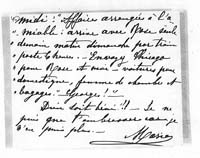 midi: "Affaire arrangée à l'a
miable: arrive avec Rose seule
demain matin demande par train
poste Thermes. Envoyez
pour Rose et moi 2 voitures pour
domestique, femme de chambre et
bagages. George!"
Dieu soit béni!! Je ne
puis que t'embrasser car je
n'en puis plus.